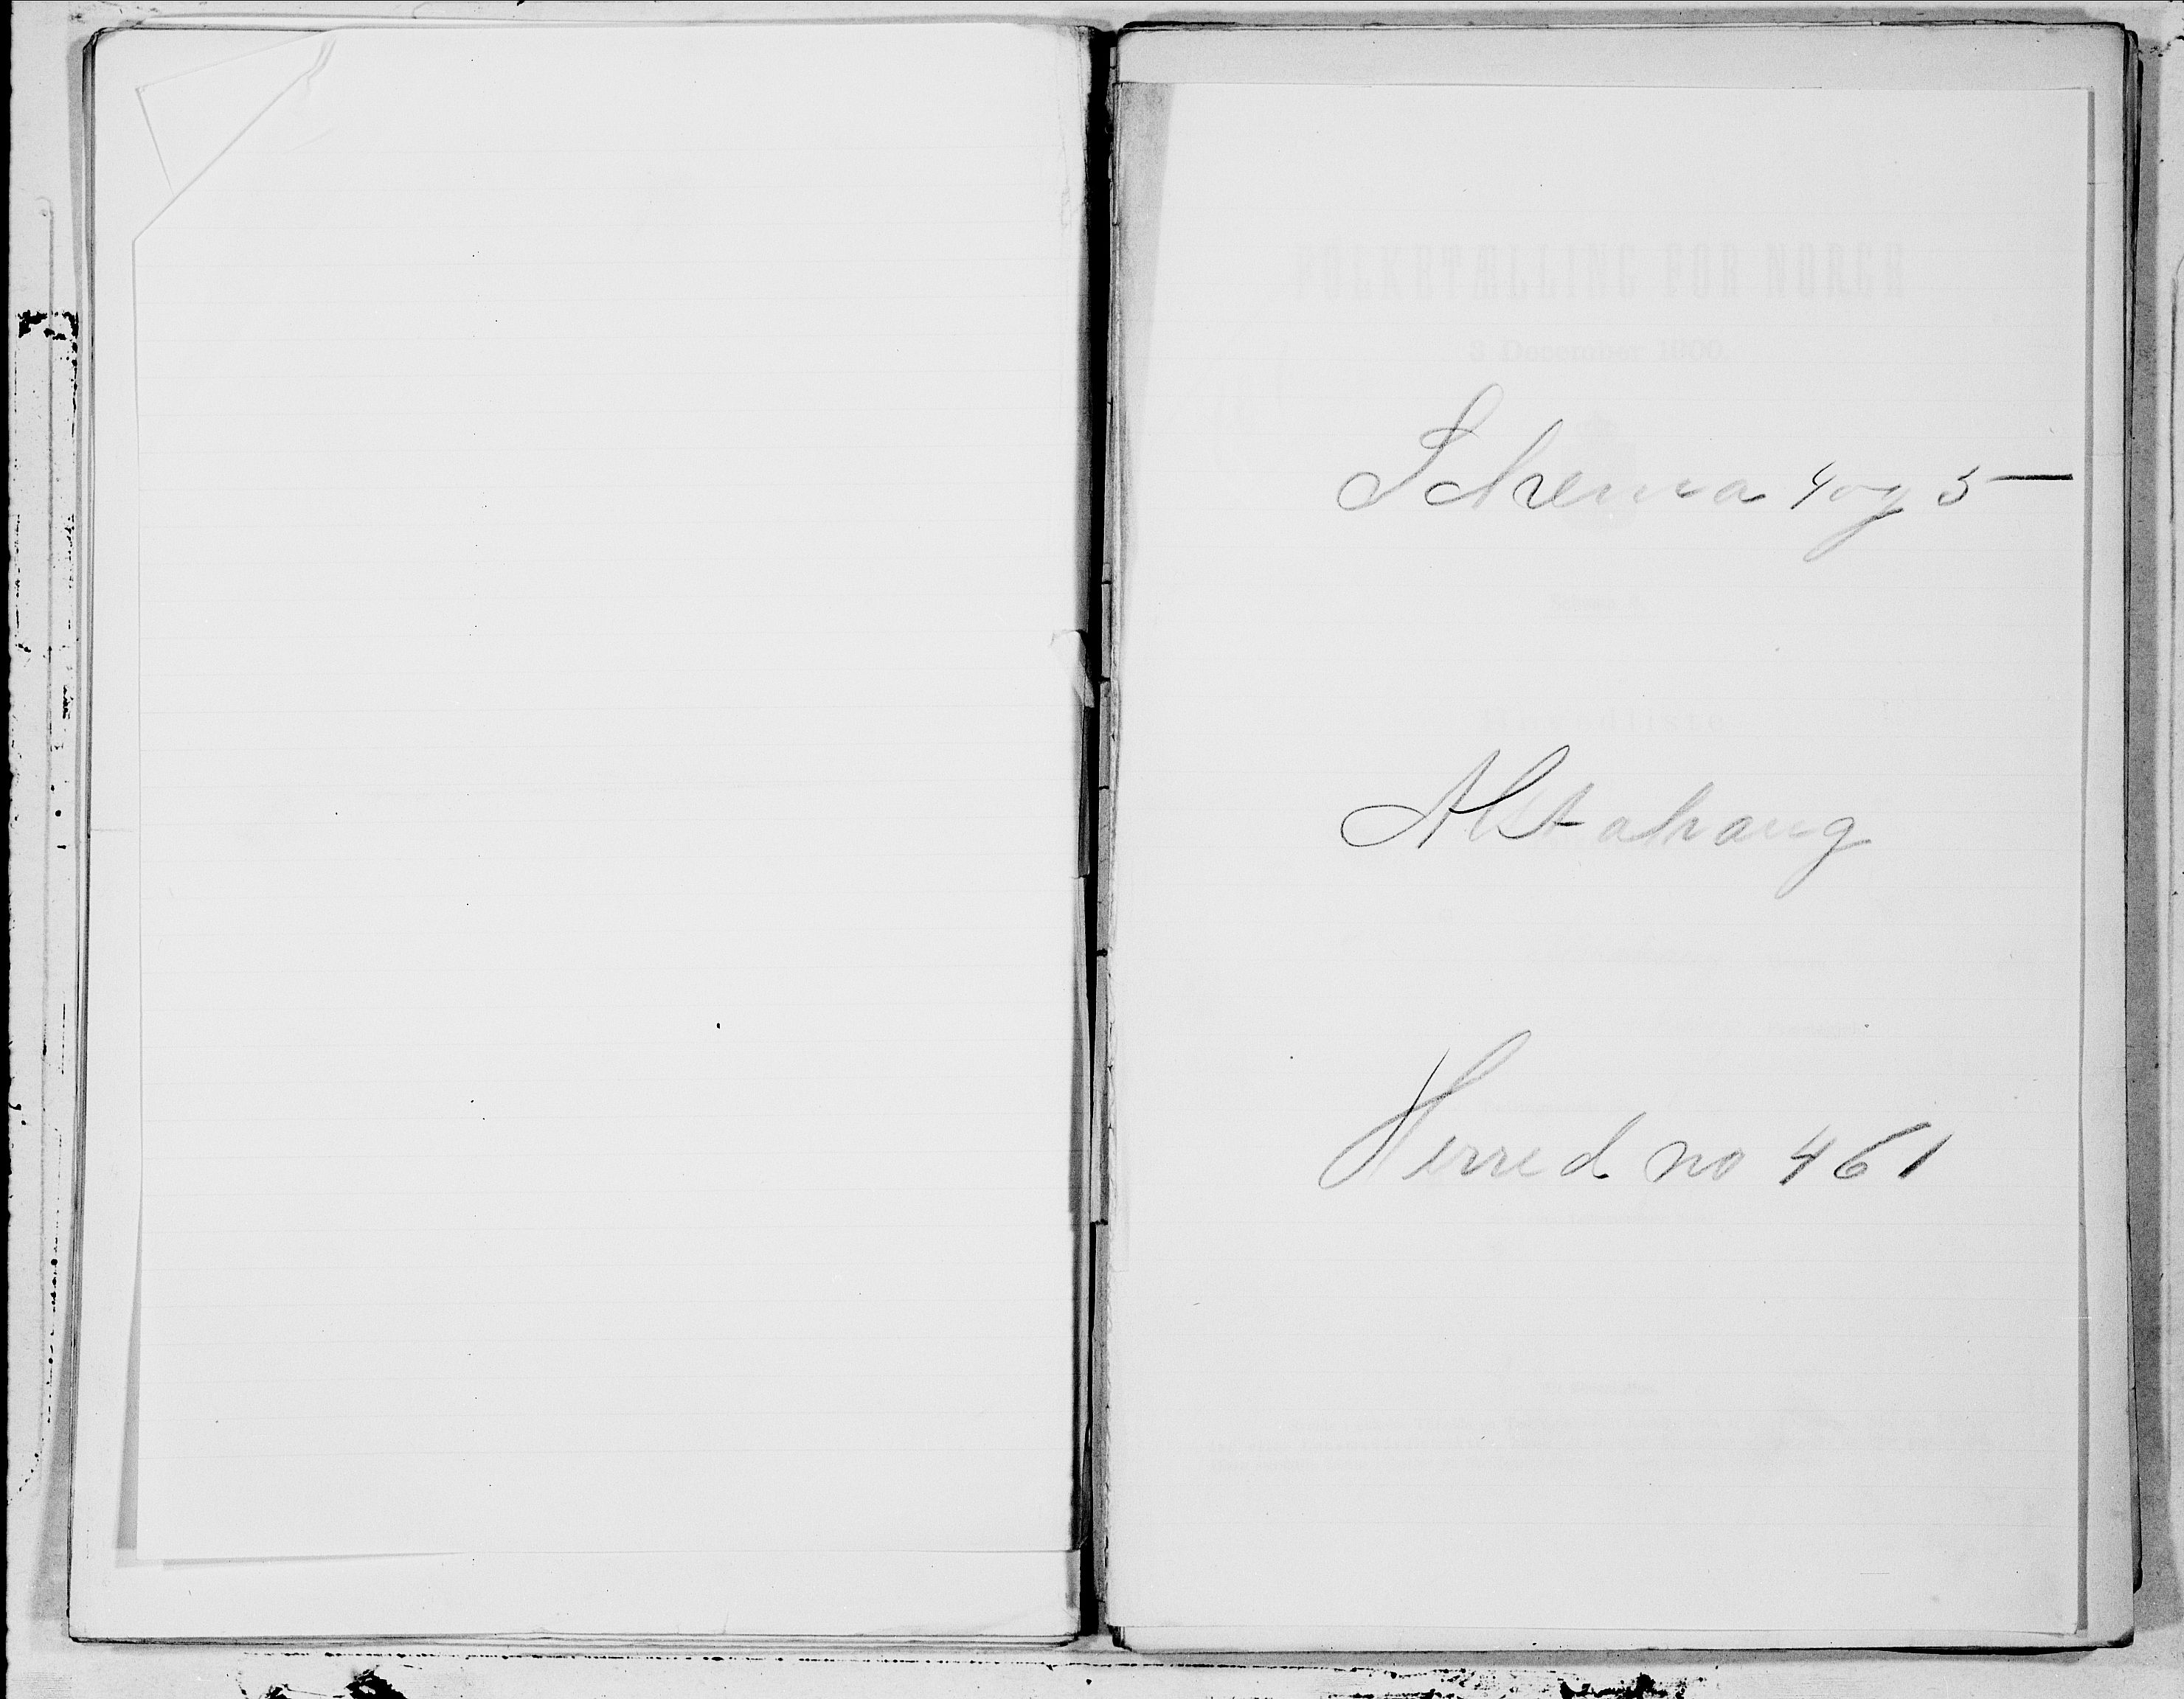 FOLKETÆLLING FOR NORGE
3 December 1900.
Schema 4 og 5
Schema 4.
Alstahaug
Herred no 461